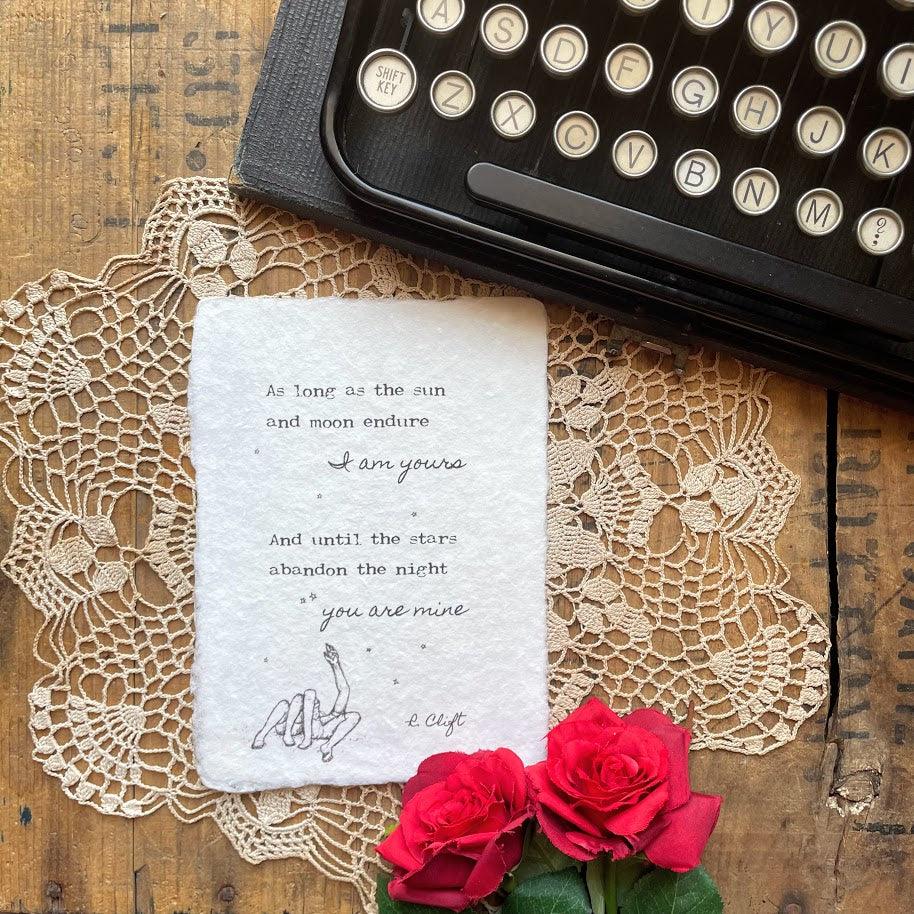 A S D F G H J K
SHIFT
KEY
Z X C V B N M ?
Y U I
As long as the sun
and moon endure
I am yours
And until the stars
abandon the night
you are mine
R. Clift